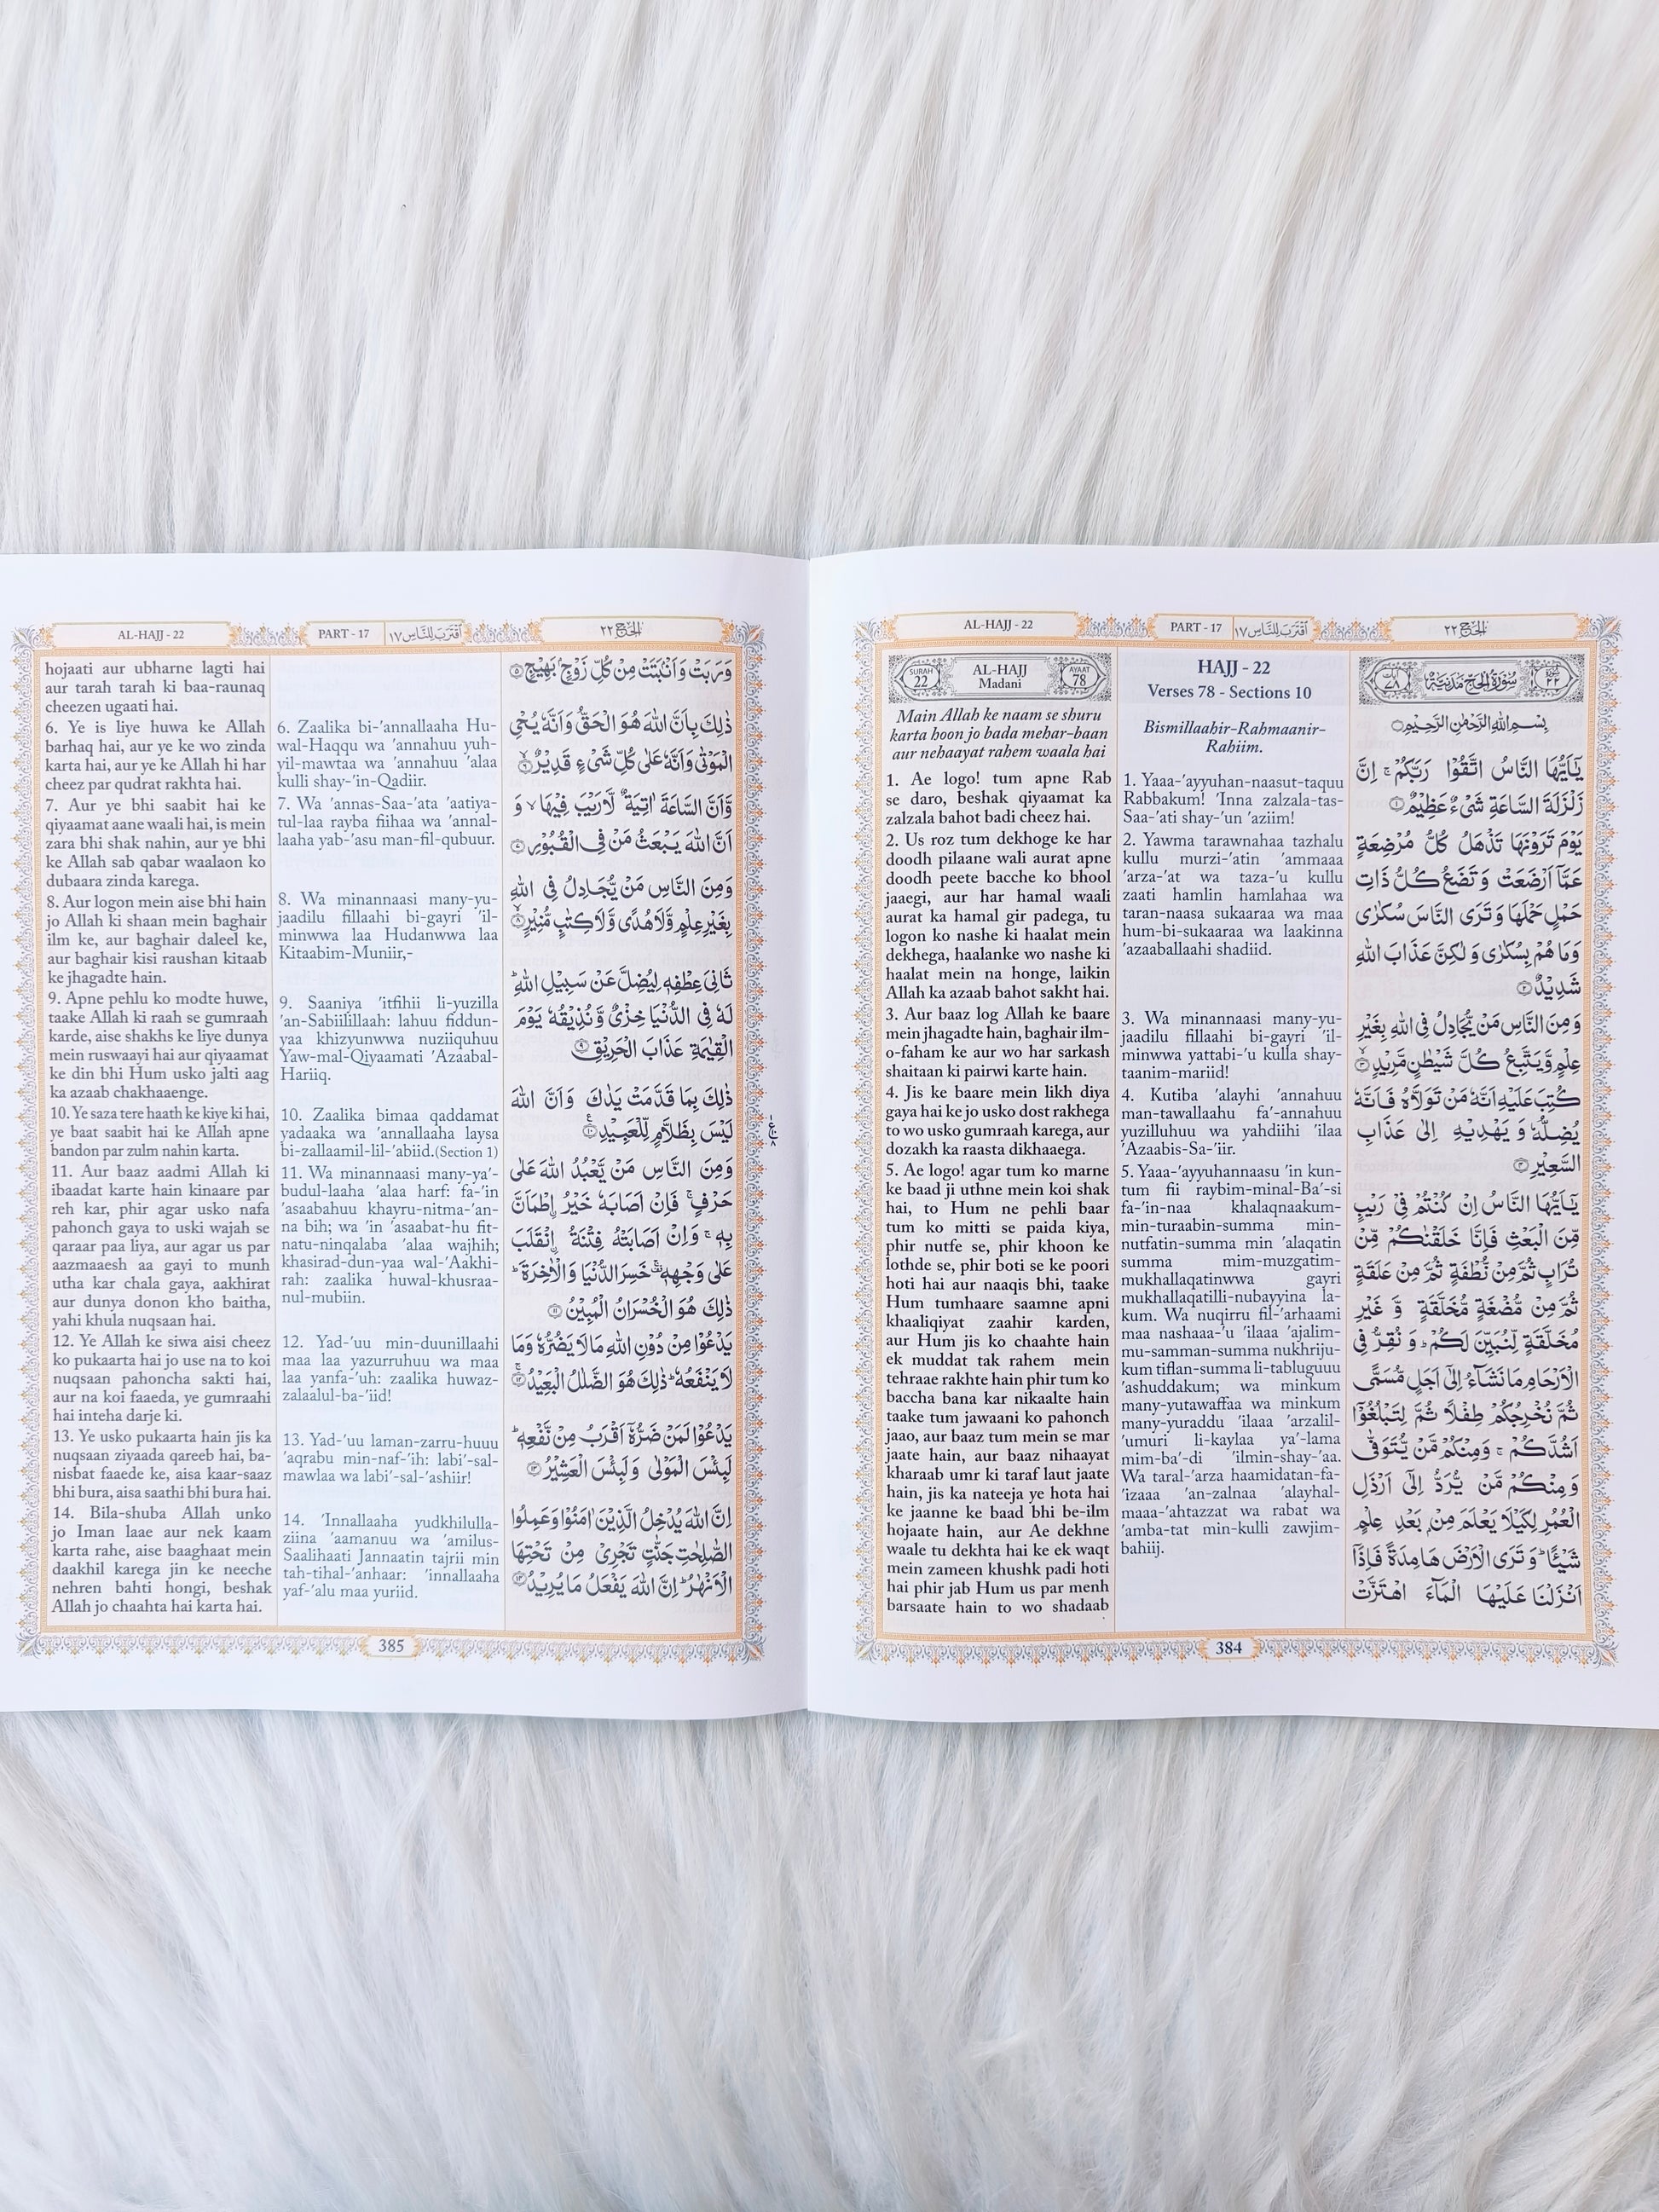 AL-HAJJ - 22
PART - 17
اقْتَرَبَ لِلنَّاسِ ١٧
الْحَجّ ٢٢
SURAH
22
AL-HAJJ
Madani
AYAAT
78
Main Allah ke naam se shuru
karta hoon jo bada mehar-baan
aur nehaayat rahem waala hai
1. Ae logo! tum apne Rab
se daro, beshak qiyaamat ka
zalzala bahot badi cheez hai.
2. Us roz tum dekhoge ke har
doodh pilaane wali aurat apne
doodh peete bacche ko bhool
jaaegi, aur har hamal waali
aurat ka hamal gir padega, tu
logon ko nashe ki haalat mein
dekhega, haalanke wo nashe ki
haalat mein na honge, laikin
Allah ka azaab bahot sakht hai.
3. Aur baaz log Allah ke baare
mein jhagadte hain, baghair ilm-
o-faham ke aur wo har sarkash
shaitaan ki pairwi karte hain.
4. Jis ke baare mein likh diya
gaya hai ke jo usko dost rakhega
to wo usko gumraah karega, aur
dozakh ka raasta dikhaaega.
5. Ae logo! agar tum ko marne
ke baad ji uthne mein koi shak
hai, to Hum ne pehli baar
tum ko mitti se paida kiya,
phir nutfe se, phir khoon ke
lothde se, phir boti se ke poori
hoti hai aur naaqis bhi, taake
Hum tumhaare saamne apni
khaaliqiyat zaahir karden,
aur Hum jis ko chaahte hain
ek muddat tak rahem mein
tehraae rakhte hain phir tum ko
baccha bana kar nikaalte hain
taake tum jawaani ko pahonch
jaao, aur baaz tum mein se mar
jaate hain, aur baaz nihaayat
kharaab umr ki taraf laut jaate
hain, jis ka nateeja ye hota hai
ke jaanne ke baad bhi be-ilm
hojaate hain, aur Ae dekhne
waale tu dekhta hai ke ek waqt
mein zameen khushk padi hoti
hai phir jab Hum us par menh
barsaate hain to wo shadaab
HAJJ - 22
Verses 78 - Sections 10
Bismillaahir-Rahmaanir-
Rahiim.
1. Yaaa-'ayyuhan-naasut-taquu
Rabbakum! 'Inna zalzala-tas-
Saa-'ati shay-'un 'aziim!
2. Yawma tarawnahaa tazhalu
kullu murzi-'atin 'ammaaa
'arza-'at wa taza-'u kullu
zaati hamlin hamlahaa wa
taran-naasa sukaaraa wa maa
hum-bi-sukaaraa wa laakinna
'azaaballaahi shadiid.
3. Wa minannaasi many-yu-
jaadilu fillaahi bi-gayri 'il-
minwwa yattabi-'u kulla shay-
taanim-mariid!
4. Kutiba 'alayhi 'annahuu
man-tawallaahu fa'-annahuu
yuzilluhuu wa yahdiihi 'ilaa
'Azaabis-Sa-'iir.
5. Yaaa-'ayyuhannaasu 'in kun-
tum fii raybim-minal-Ba'-si
fa-'in-naa khalaqnaakum-
min-turaabin-summa min-
nutfatin-summa min 'alaqatin
summa mim-muzgatim-
mukhallaqatinwwa gayri
mukhallaqatilli-nubayyina la-
kum. Wa nuqirru fil-'arhaami
maa nashaaa-'u 'ilaaa 'ajalim-
mu-samman-summa nukhriju-
kum tiflan-summa li-tabluguuu
'ashuddakum; wa minkum
many-yutawaffaa wa minkum
many-yuraddu 'ilaaa 'arzalil-
'umuri li-kaylaa ya'-lama
mim-ba'-di 'ilmin-shay-'aa.
Wa taral-'arza haamidatan-fa-
'izaaa 'an-zalnaa 'alayhal-
maaa-'ahtazzat wa rabat wa
'amba-tat min-kulli zawjim-
bahiij.
سُوْرَةُ الْحَجِّ مَدَنِيَّةٌ
بِسْمِ اللّٰهِ الرَّحْمٰنِ الرَّحِيْمِ
يٰۤاَيُّهَا النَّاسُ اتَّقُوْا رَبَّكُمْ ۚ اِنَّ
زَلْزَلَةَ السَّاعَةِ شَىْءٌ عَظِيْمٌ ۝۱
يَوْمَ تَرَوْنَهَا تَذْهَلُ كُلُّ مُرْضِعَةٍ
عَمَّاۤ اَرْضَعَتْ وَتَضَعُ كُلُّ ذَاتِ
حَمْلٍ حَمْلَهَا وَتَرَى النَّاسَ سُكٰرٰى
وَمَا هُمْ بِسُكٰرٰى وَلٰكِنَّ عَذَابَ اللّٰهِ
شَدِيْدٌ ۝۲
وَمِنَ النَّاسِ مَنْ يُّجَادِلُ فِى اللّٰهِ بِغَيْرِ
عِلْمٍ وَّيَتَّبِعُ كُلَّ شَيْطٰنٍ مَّرِيْدٍ ۝۳
كُتِبَ عَلَيْهِ اَنَّهٗ مَنْ تَوَلَّاهُ فَاَنَّهٗ
يُضِلُّهٗ وَيَهْدِيْهِ اِلٰى عَذَابِ
السَّعِيْرِ ۝۴
يٰۤاَيُّهَا النَّاسُ اِنْ كُنْتُمْ فِىْ رَيْبٍ
مِّنَ الْبَعْثِ فَاِنَّا خَلَقْنٰكُمْ مِّنْ
تُرَابٍ ثُمَّ مِنْ نُّطْفَةٍ ثُمَّ مِنْ عَلَقَةٍ
ثُمَّ مِنْ مُّضْغَةٍ مُّخَلَّقَةٍ وَّغَيْرِ
مُخَلَّقَةٍ لِّنُبَيِّنَ لَكُمْ ؕ وَنُقِرُّ فِى
الْاَرْحَامِ مَا نَشَآءُ اِلٰۤى اَجَلٍ مُّسَمًّى
ثُمَّ نُخْرِجُكُمْ طِفْلًا ثُمَّ لِتَبْلُغُوْۤا
اَشُدَّكُمْ ۚ وَمِنْكُمْ مَّنْ يُّتَوَفّٰى
وَمِنْكُمْ مَّنْ يُّرَدُّ اِلٰۤى اَرْذَلِ
الْعُمُرِ لِكَيْلَا يَعْلَمَ مِنْۢ بَعْدِ عِلْمٍ
شَيْـًٔا ؕ وَتَرَى الْاَرْضَ هَامِدَةً فَاِذَاۤ
اَنْزَلْنَا عَلَيْهَا الْمَآءَ اهْتَزَّتْ
384
AL-HAJJ - 22
PART - 17
اقْتَرَبَ لِلنَّاسِ ١٧
الْحَجّ ٢٢
hojaati aur ubharne lagti hai
aur tarah tarah ki baa-raunaq
cheezen ugaati hai.
6. Ye is liye huwa ke Allah
barhaq hai, aur ye ke wo zinda
karta hai, aur ye ke Allah hi har
cheez par qudrat rakhta hai.
7. Aur ye bhi saabit hai ke
qiyaamat aane waali hai, is mein
zara bhi shak nahin, aur ye bhi
ke Allah sab qabar waalaon ko
dubaara zinda karega.
8. Aur logon mein aise bhi hain
jo Allah ki shaan mein baghair
ilm ke, aur baghair daleel ke,
aur baghair kisi raushan kitaab
ke jhagadte hain.
9. Apne pehlu ko modte huwe,
taake Allah ki raah se gumraah
karde, aise shakhs ke liye dunya
mein ruswaayi hai aur qiyaamat
ke din bhi Hum usko jalti aag
ka azaab chakhaaenge.
10. Ye saza tere haath ke kiye ki hai,
ye baat saabit hai ke Allah apne
bandon par zulm nahin karta.
11. Aur baaz aadmi Allah ki
ibaadat karte hain kinaare par
reh kar, phir agar usko nafa
pahonch gaya to uski wajah se
qaraar paa liya, aur agar us par
aazmaaesh aa gayi to munh
utha kar chala gaya, aakhirat
aur dunya donon kho baitha,
yahi khula nuqsaan hai.
12. Ye Allah ke siwa aisi cheez
ko pukaarta hai jo use na to koi
nuqsaan pahoncha sakti hai,
aur na koi faaeda, ye gumraahi
hai inteha darje ki.
13. Ye usko pukaarta hain jis ka
nuqsaan ziyaada qareeb hai, ba-
nisbat faaede ke, aisa kaar-saaz
bhi bura, aisa saathi bhi bura hai.
14. Bila-shuba Allah unko
jo Iman laae aur nek kaam
karta rahe, aise baaghaat mein
daakhil karega jin ke neeche
nehren bahti hongi, beshak
Allah jo chaahta hai karta hai.
6. Zaalika bi-'annallaaha Hu-
wal-Haqqu wa 'annahuu yuh-
yil-mawtaa wa 'annahuu 'alaa
kulli shay-'in-Qadiir.
7. Wa 'annas-Saa-'ata 'aatiya-
tul-laa rayba fiihaa wa 'annal-
laaha yab-'asu man-fil-qubuur.
8. Wa minannaasi many-yu-
jaadilu fillaahi bi-gayri 'il-
minwwa laa Hudanwwa laa
Kitaabim-Muniir,-
9. Saaniya 'itfihii li-yuzilla
'an-Sabiilillaah: lahuu fiddun-
yaa khizyunwwa nuziiquhuu
Yaw-mal-Qiyaamati 'Azaabal-
Hariiq.
10. Zaalika bimaa qaddamat
yadaaka wa 'annallaaha laysa
bi-zallaamil-lil-'abiid.(Section 1)
11. Wa minannaasi many-ya'-
budul-laaha 'alaa harf: fa-'in
'asaabahuu khayru-nitma-'an-
na bih; wa 'in 'asaabat-hu fit-
natu-ninqalaba 'alaa wajhih;
khasirad-dun-yaa wal-'Aakhi-
rah: zaalika 'huwal-khusraa-
nul-mubiin.
12. Yad-'uu min-duunillaahi
maa laa yazurruhuu wa maa
laa yanfa-'uh: zaalika huwaz-
zalaalul-ba-'iid!
13. Yad-'uu laman-zarru-huuu
'aqrabu min-naf-'ih: labi'-sal-
mawlaa wa labi'-sal-'ashiir!
14. 'Innallaaha yudkhilulla-
ziina 'aamanuu wa 'amilus-
Saalihaati Jannaatin tajrii min
tah-tihal-'anhaar: 'innallaaha
yaf-'alu maa yuriid.
وَرَبَتْ وَاَنْۢبَتَتْ مِنْ كُلِّ زَوْجٍۢ بَهِيْجٍ ۝۵
ذٰلِكَ بِاَنَّ اللّٰهَ هُوَ الْحَقُّ وَاَنَّهٗ يُحْىِ
الْمَوْتٰى وَاَنَّهٗ عَلٰى كُلِّ شَىْءٍ قَدِيْرٌ ۝۶
وَّاَنَّ السَّاعَةَ اٰتِيَةٌ لَّا رَيْبَ فِيْهَا ۙ وَ
اَنَّ اللّٰهَ يَبْعَثُ مَنْ فِى الْقُبُوْرِ ۝۷
وَمِنَ النَّاسِ مَنْ يُّجَادِلُ فِى اللّٰهِ
بِغَيْرِ عِلْمٍ وَّلَا هُدًى وَّلَا كِتٰبٍ مُّنِيْرٍ ۝۸
ثَانِىَ عِطْفِهٖ لِيُضِلَّ عَنْ سَبِيْلِ اللّٰهِ ؕ
لَهٗ فِى الدُّنْيَا خِزْىٌ وَّنُذِيْقُهٗ يَوْمَ
الْقِيٰمَةِ عَذَابَ الْحَرِيْقِ ۝۹
ذٰلِكَ بِمَا قَدَّمَتْ يَدٰكَ وَاَنَّ اللّٰهَ
لَيْسَ بِظَلَّامٍ لِّلْعَبِيْدِ ۝۱۰
وَمِنَ النَّاسِ مَنْ يَّعْبُدُ اللّٰهَ عَلٰى
حَرْفٍ ۚ فَاِنْ اَصَابَهٗ خَيْرُ اۨطْمَاَنَّ
بِهٖ ۚ وَاِنْ اَصَابَتْهُ فِتْنَةُ اۨنْقَلَبَ
عَلٰى وَجْهِهٖ ۚ خَسِرَ الدُّنْيَا وَالْاٰخِرَةَ ؕ
ذٰلِكَ هُوَ الْخُسْرَانُ الْمُبِيْنُ ۝۱۱
يَدْعُوْا مِنْ دُوْنِ اللّٰهِ مَا لَا يَضُرُّهٗ وَمَا
لَا يَنْفَعُهٗ ؕ ذٰلِكَ هُوَ الضَّلٰلُ الْبَعِيْدُ ۝۱۲
يَدْعُوْا لَمَنْ ضَرُّهٗۤ اَقْرَبُ مِنْ نَّفْعِهٖ ؕ
لَبِئْسَ الْمَوْلٰى وَلَبِئْسَ الْعَشِيْرُ ۝۱۳
اِنَّ اللّٰهَ يُدْخِلُ الَّذِيْنَ اٰمَنُوْا وَعَمِلُوا
الصّٰلِحٰتِ جَنّٰتٍ تَجْرِىْ مِنْ تَحْتِهَا
الْاَنْهٰرُ ؕ اِنَّ اللّٰهَ يَفْعَلُ مَا يُرِيْدُ ۝۱۴
385